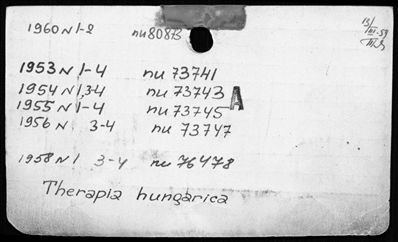 1960 N 1-2 nu 80873
1953 N 1-4 nu 73741
1954 N 1,3-4 nu 73743
1955 N 1-4 nu 73745
A
1956 N 3-4 nu 73747
1958 N 1 3-4 nu 76478
Therapia hungarica